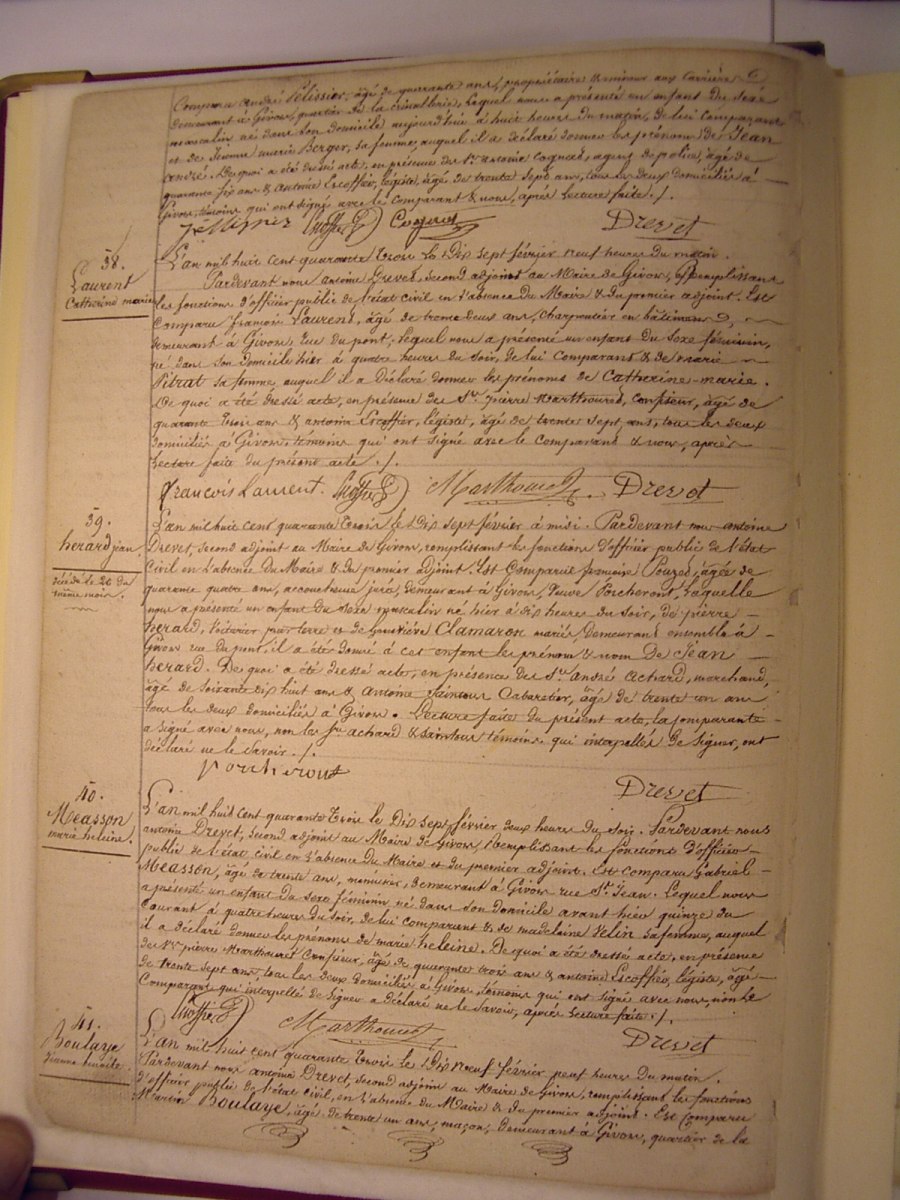 Comparu André Pelissier, âgé de quarante ans, propriétaire & mineur aux Carrières
demeurant à Givors, quartier de la Lequel nous a présenté un enfant du sexe
masculin né dans son domicile aujourd'hui à huit heures du matin, de lui Comparant
et de Jeanne marie Berger, sa femme, auquel il a déclaré donner les prénoms de Jean
andré. De quoi a été dressé acte, en présence de Sr. antoine Coquet, agent de police, âgé de
quarante six ans & Antoine Escoffier, légiste, âgé de trente sept ans, tous les deux domiciliés à
Givors, témoins qui ont signé avec le comparant & nous, après Lecture faite ./.
Pelissier Escoffier Coquet Drevet
38.
Laurent
Catherine marie
L'an mil huit cent quarante Trois le Dix sept février neuf heures du matin.
Pardevant nous antoine Drevet, second adjoint au Maire de Givors, remplissant
les fonctions d'officier public de l'état civil en l'absence du Maire & du premier adjoint. Est
Comparu françois Laurent, âgé de trente deux ans, Charpentier en bâtiment,
demeurant à Givors rue du pont, Lequel nous a présenté un enfant du Sexe féminin,
né dans son domicile hier à quatre heures du soir, de lui comparant & de marie
Pitrat sa femme, auquel il a Déclaré donner les prénoms de Catherine-marie.
De quoi a été dressé acte, en présence des Srs. pierre Marthouret, Confiseur, âgé de
quarante trois ans & antoine Escoffier, légiste, âgé de trente sept ans, tous les deux
domiciliés à Givors, témoins qui ont signé avec le Comparant & nous, après
Lecture faite du présent acte ./.
françois Laurent. Escoffier Marthouret Drevet
39.
herard jean
décédé le 26 du
même mois.
L'an mil huit cent quarante Trois le Dix sept février à midi. Pardevant nous antoine
Drevet, second adjoint au Maire de Givors, remplissant les fonctions d'officier public de l'état
Civil en L'absence du Maire & du premier adjoint. Est Comparue Pouzet, âgée de
quarante quatre ans, accoucheuse jurée, demeurant à Givors, Veuve Porcheront, Laquelle
nous a présenté un enfant du Sexe masculin né hier à dix heures du soir, de pierre
herard, Voiturier par terre et de Geneviève Clamaron mariés demeurant ensemble à
Givors rue du pont, il a été donné à cet enfant les prénom & nom De Jean
herard. De quoi a été dressé acte, en présence des Srs. andré achard, marchand,
âgé de soixante dix huit ans & antoine Saintous Cabaretier, âgé de trente un ans
tous les deux domiciliés à Givors. Lecture faite du présent acte, la comparante
a signé avec nous, non les Srs. achard & Saintous témoins qui interpellés de signer, ont
déclaré ne le savoir ./.
Porcheront Drevet
40.
Measson
marie heleine.
L'an mil huit cent quarante Trois le Dix sept février deux heures du soir. Pardevant nous
antoine Drevet, second adjoint au Maire de Givors, Remplissant les fonctions d'officier
public de l'état civil en L'absence du Maire et du premier adjoint. Est comparu Gabriel
Measson, âgé de trente ans, menuisier, demeurant à Givors rue St. Jean. Lequel nous
a présenté un enfant du sexe féminin né dans son domicile avant hier quinze du
Courant à quatre heures du soir, de lui comparant & de madelaine Velin sa femme, auquel
il a déclaré donner les prénoms de marie heleine. De quoi a été dressé acte, en présence
des Srs. pierre Marthouret Confiseur, âgé de quarante trois ans & antoine Escoffier, légiste, âgé
de trente sept ans, tous les deux domiciliés à Givors, témoins qui ont signé avec nous, non le
Comparant qui interpellé de signer a déclaré ne le savoir, après Lecture faite ./.
Escoffier Marthouret Drevet
41.
Boulaye
L'an mil huit cent quarante Trois le Dix neuf février neuf heures du matin.
Pardevant nous antoine Drevet, second adjoint au Maire de Givors, remplissant les fonctions
d'officier public de l'état civil, en L'absence du Maire & du premier adjoint. Est Comparu
Martin Boulaye, âgé de trente un ans, maçon, demeurant à Givors, quartier de la